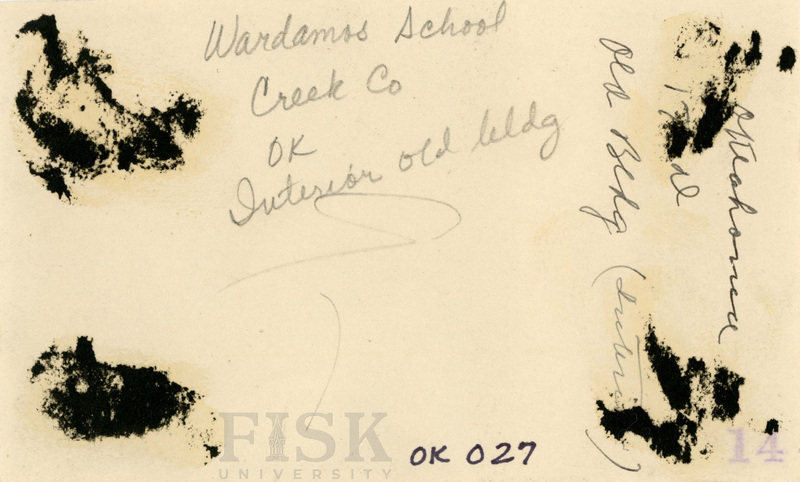 Wardamos School
Creek Co
OK
Interior old bldg
Oklahoma
Old Bldg (Interior)
FISK
UNIVERSITY
OK 027
14